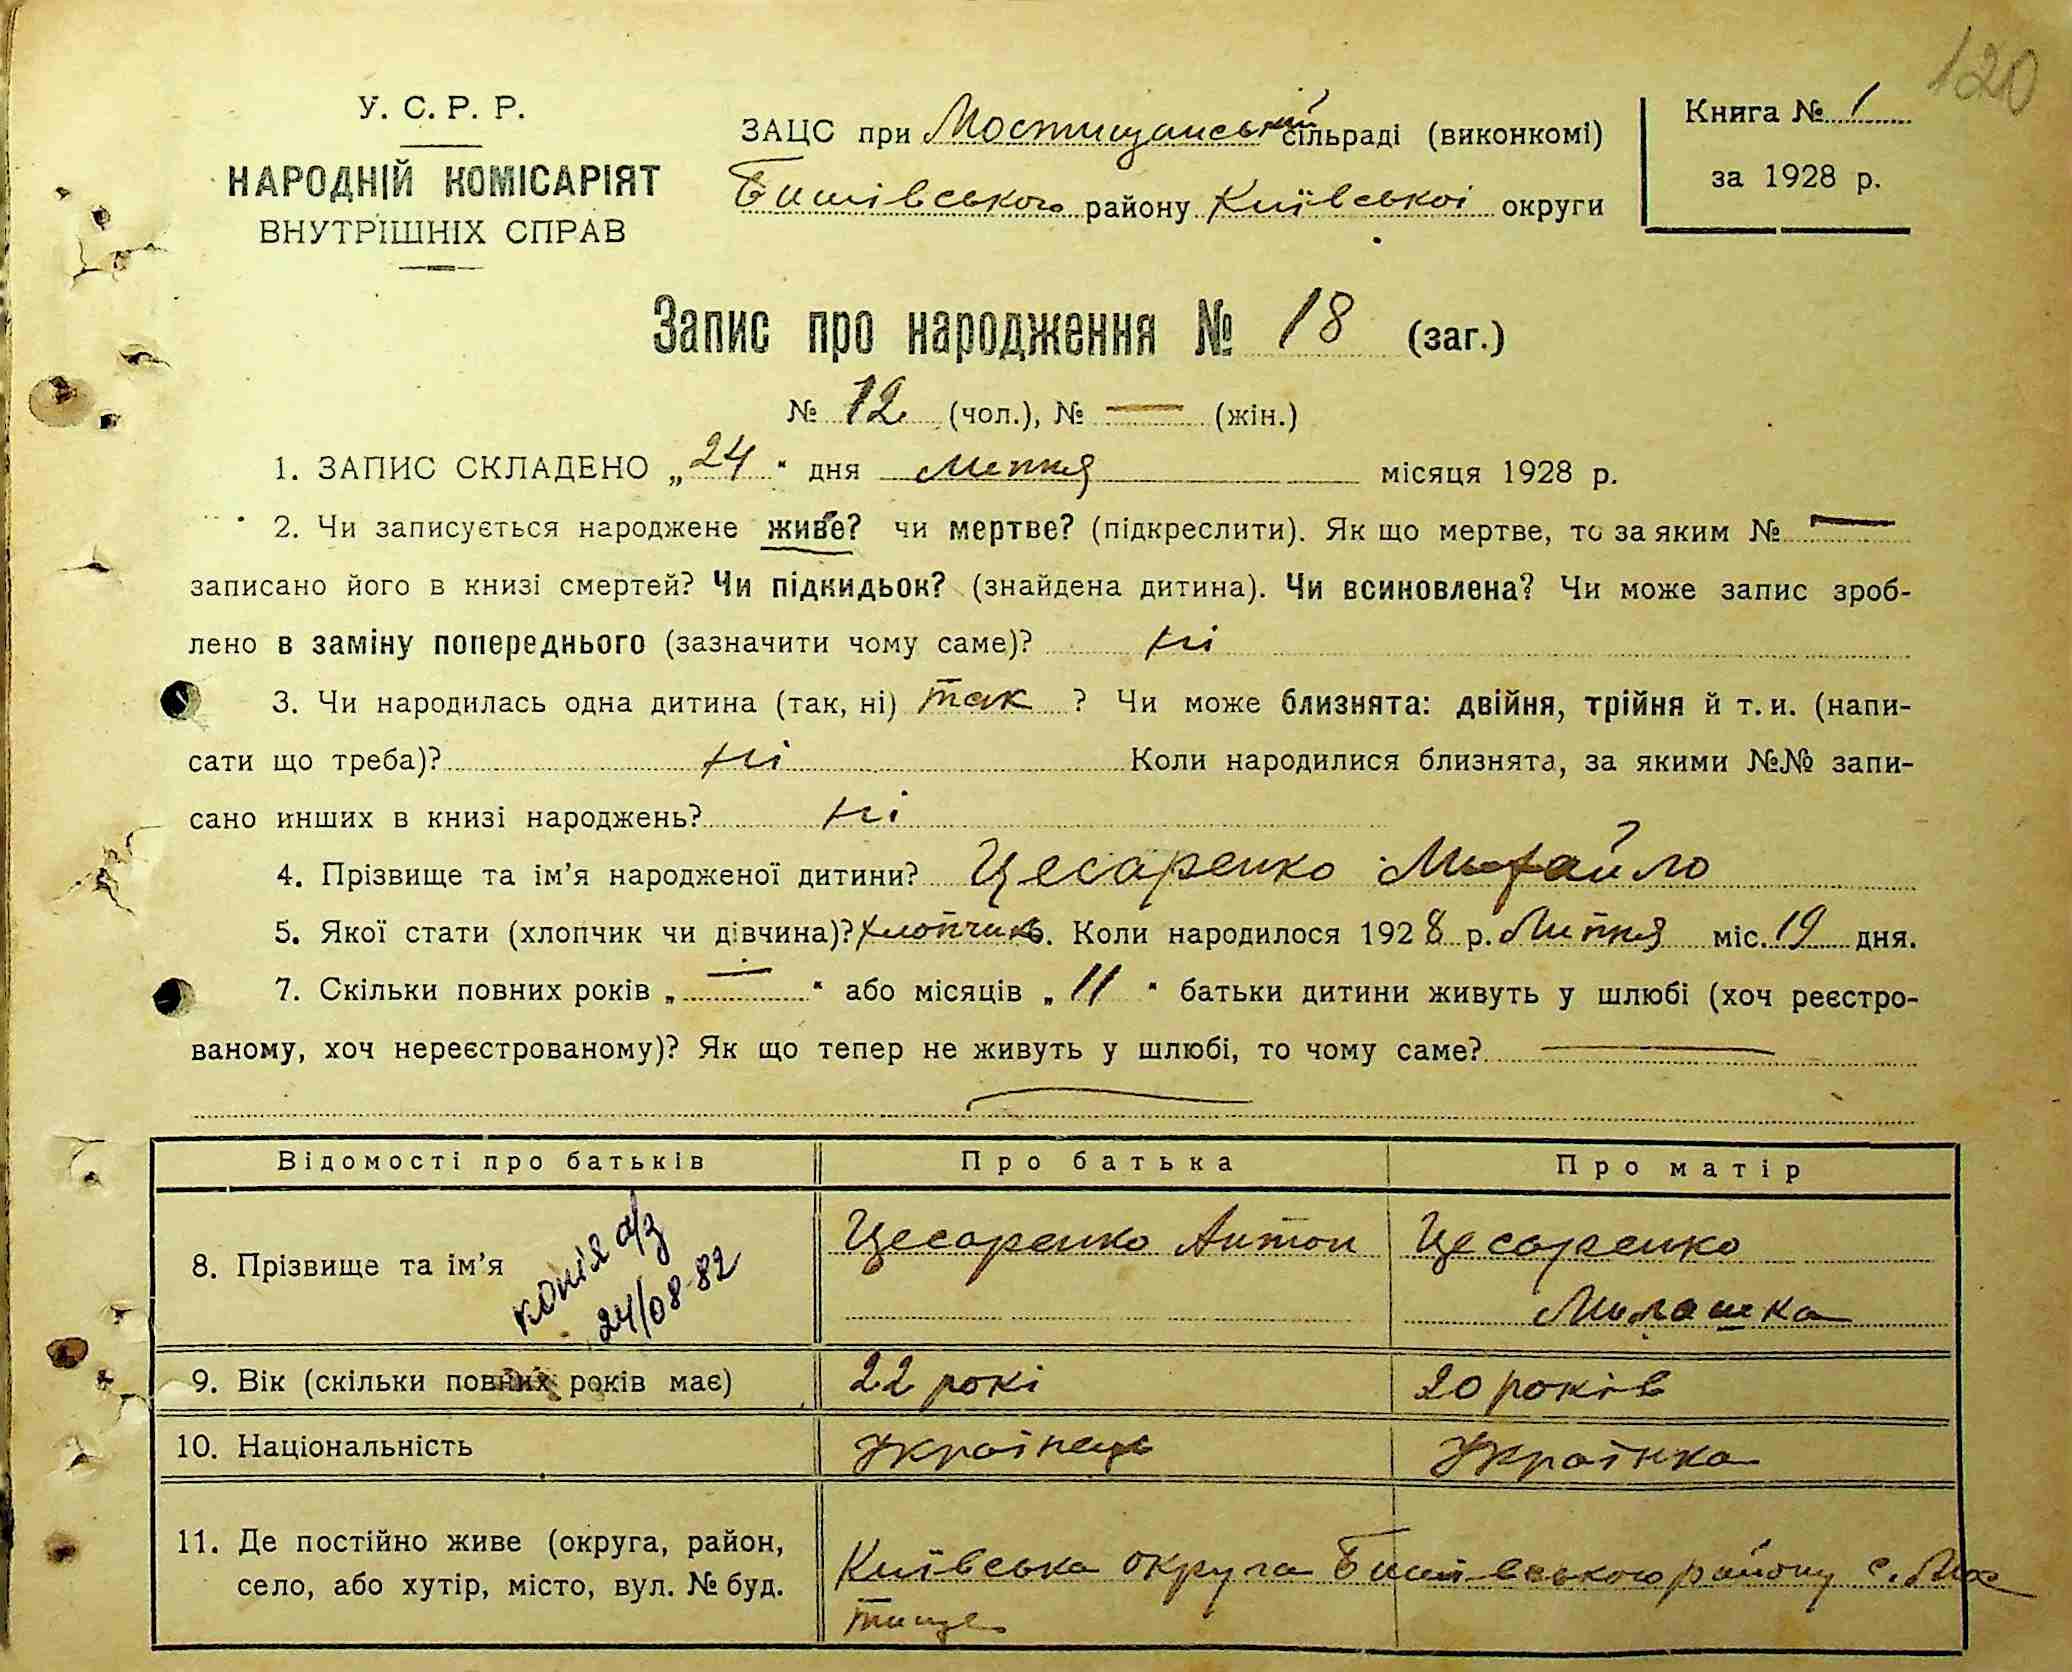 120
У. С. Р. Р.
НАРОДНІЙ КОМІСАРІЯТ
ВНУТРІШНІХ СПРАВ
ЗАЦС при Мостищанській сільраді (виконкомі)
Бишівського району Київської округи
Книга № 1
за 1928 р.
Запис про народження № 18 (заг.)
№ 12 (чол.), № — (жін.)
1. ЗАПИС СКЛАДЕНО „24" дня липня місяця 1928 р.
2. Чи записується народжене живе? чи мертве? (підкреслити). Як що мертве, то за яким № —
записано його в книзі смертей? Чи підкидьок? (знайдена дитина). Чи всиновлена? Чи може запис зроб-
лено в заміну попереднього (зазначити чому саме)? ні
3. Чи народилась одна дитина (так, ні) так ? Чи може близнята: двійня, трійня й т. и. (напи-
сати що треба)? ні Коли народилися близнята, за якими №№ запи-
сано инших в книзі народжень? ні
4. Прізвище та ім'я народженої дитини? Цесаренко Михайло
5. Якої стати (хлопчик чи дівчина)? хлопчик. Коли народилося 1928 р. Липня міс. 19 дня.
7. Скільки повних років „—" або місяців „11" батьки дитини живуть у шлюбі (хоч реєстро-
ваному, хоч нереєстрованому)? Як що тепер не живуть у шлюбі, то чому саме? —
Відомості про батьків Про батька Про матір
8. Прізвище та ім'я Цесаренко Антон Цесаренко
Милашка
копія а/з
24/08-82
9. Вік (скільки повних років має) 22 рокі 20 років
10. Національність Українець Українка
11. Де постійно живе (округа, район,
село, або хутір, місто, вул. № буд.
Київська округа Бишівського району с. Мос
тище